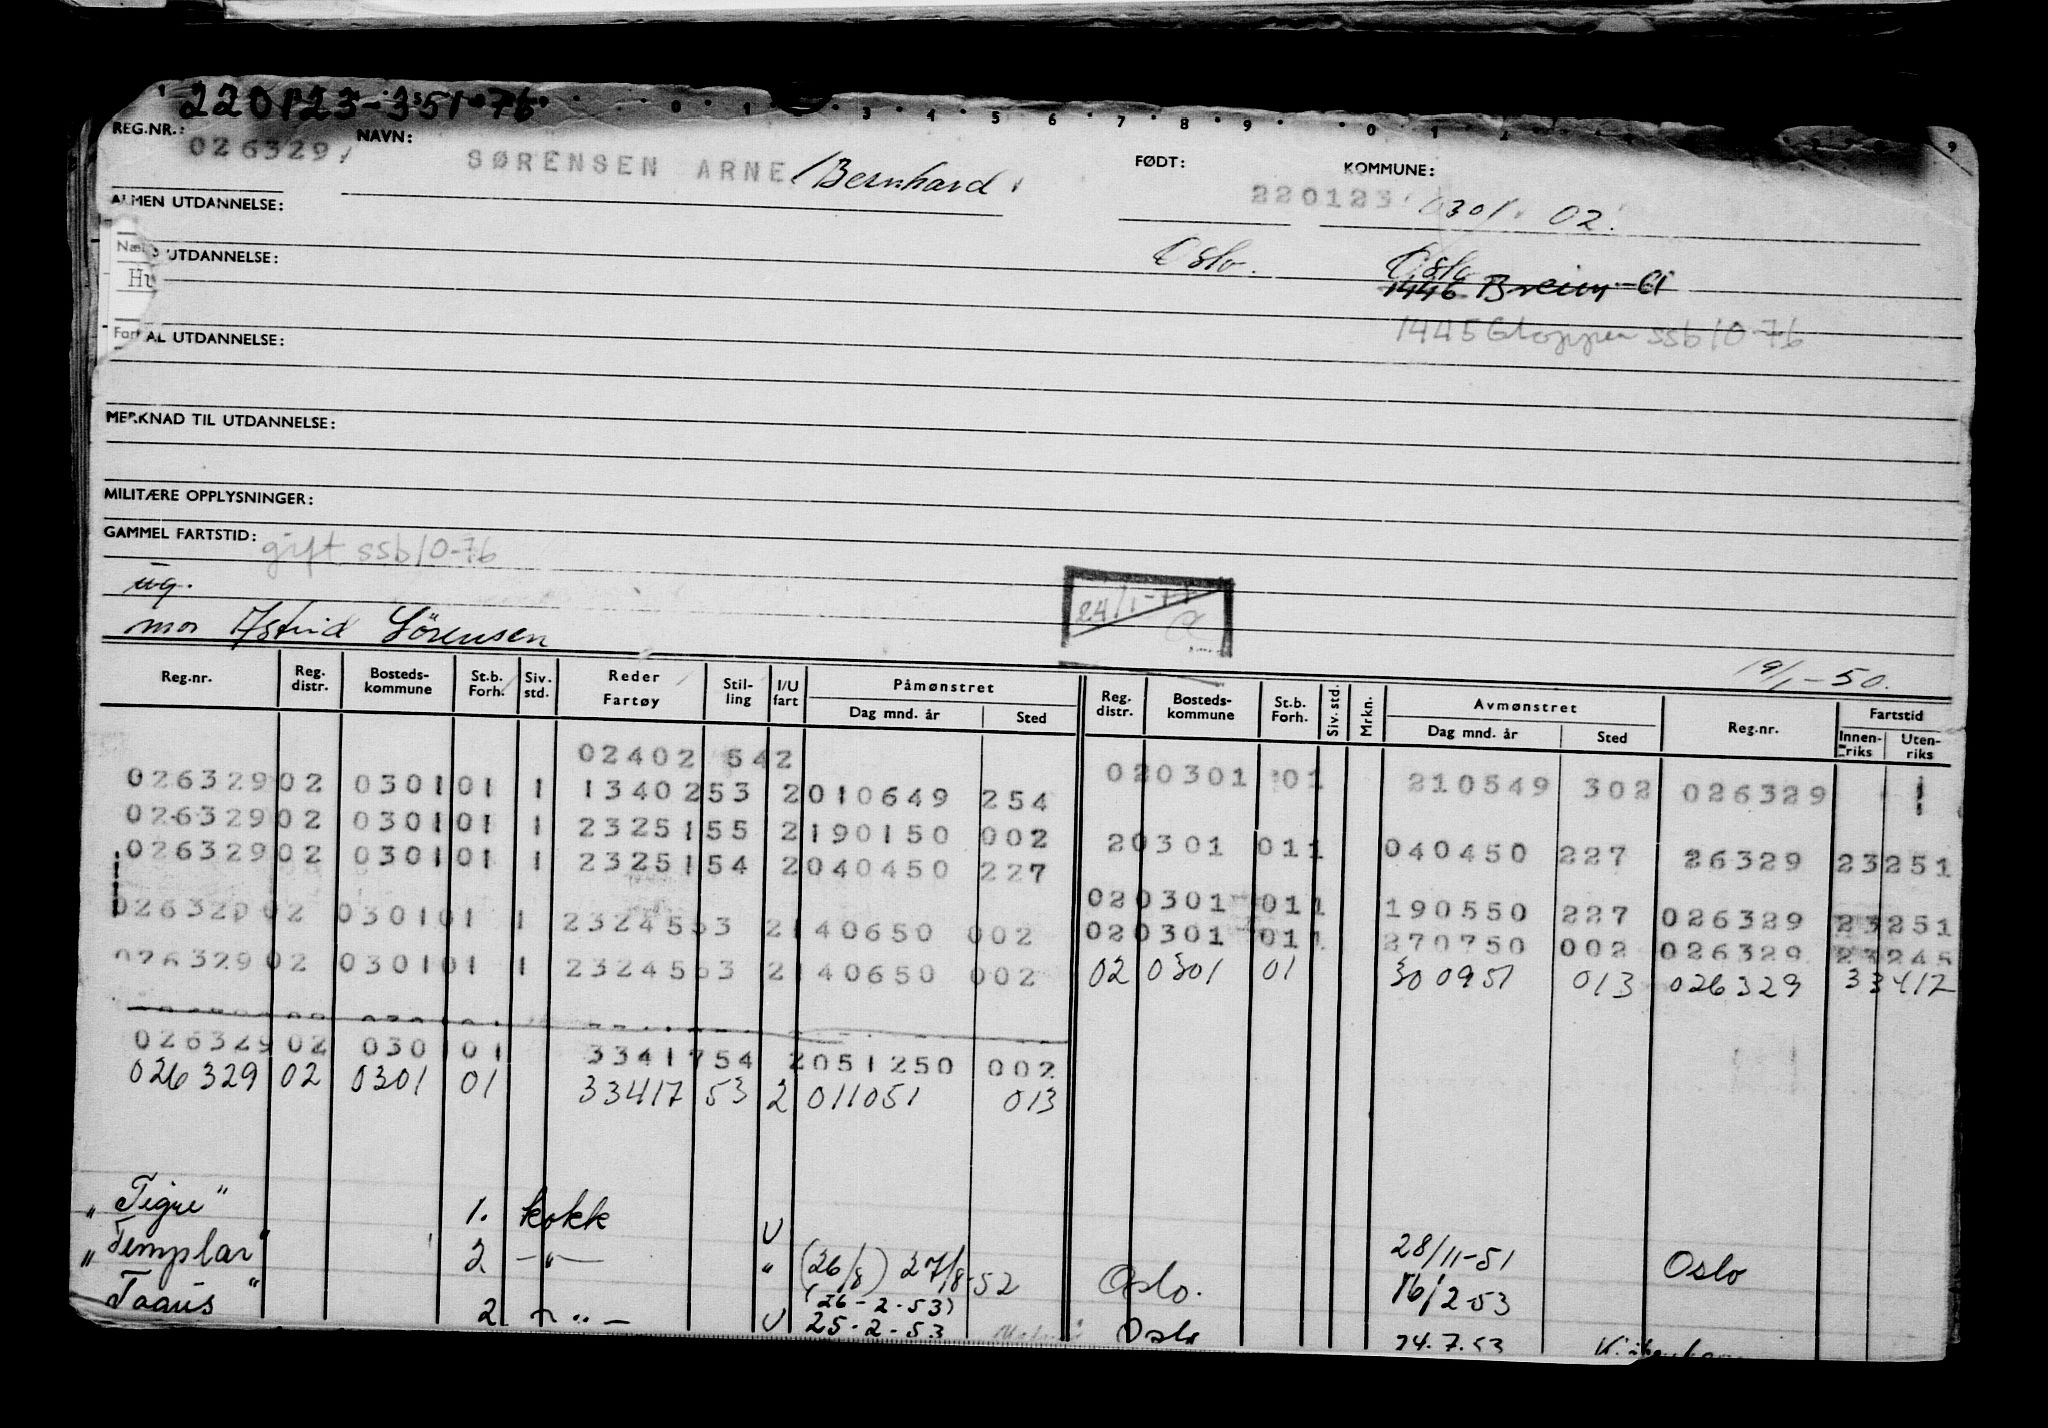 220123-35176
REG.NR.: NAVN: FØDT: KOMMUNE:
026329 SØRENSEN ARNE Bernhard 220123 0301 02
ALMEN UTDANNELSE:
Oslo. Oslo
UTDANNELSE: 1446 Breim
Hu
1445 Gloppen ssb 10-76
AL UTDANNELSE:
MERKNAD TIL UTDANNELSE:
MILITÆRE OPPLYSNINGER:
GAMMEL FARTSTID: gift ssb 10-76
ug.
24/1-77
mor Astrid Sörensen
19/1-50.
Reg.nr. Reg. distr. Bosteds-kommune St.b. Forh. Siv. std. Reder Fartøy Stil-ling I/U fart Påmønstret Dag mnd. år Sted Reg. distr. Bosteds-kommune St.b. Forh. Siv. std. Mrkn. Avmønstret Dag mnd. år Sted Reg.nr. Fartstid Innen-riks Uten-riks
02402 542 020301 01 210549 302 026329
026329 02 0301 01 1 13402 53 2 010649 254
026329 02 0301 01 1 23251 55 2 190150 002 20301 011 040450 227 26329 23251
026329 02 0301 01 1 23251 54 2 040450 227
020301 011 190550 227 026329 23251
026329 02 0301 01 1 23245 53 2 140650 002 020301 011 270750 002 026329 23245
026329 02 0301 01 1 23245 53 2 140650 002 02 0301 01 300951 013 026329 33417
026329 02 0301 01 33417 54 2 051250 002
026329 02 0301 01 33417 53 2 011051 013
"Tigre" 1. kokk U 28/11-51 Oslo
"Templar" 2 -"- " (26/8) 27/8-52 Oslo. 16/2-53
(26-2-53)
Taaus" 2 U 25-2-53 Oslo 24.7.53